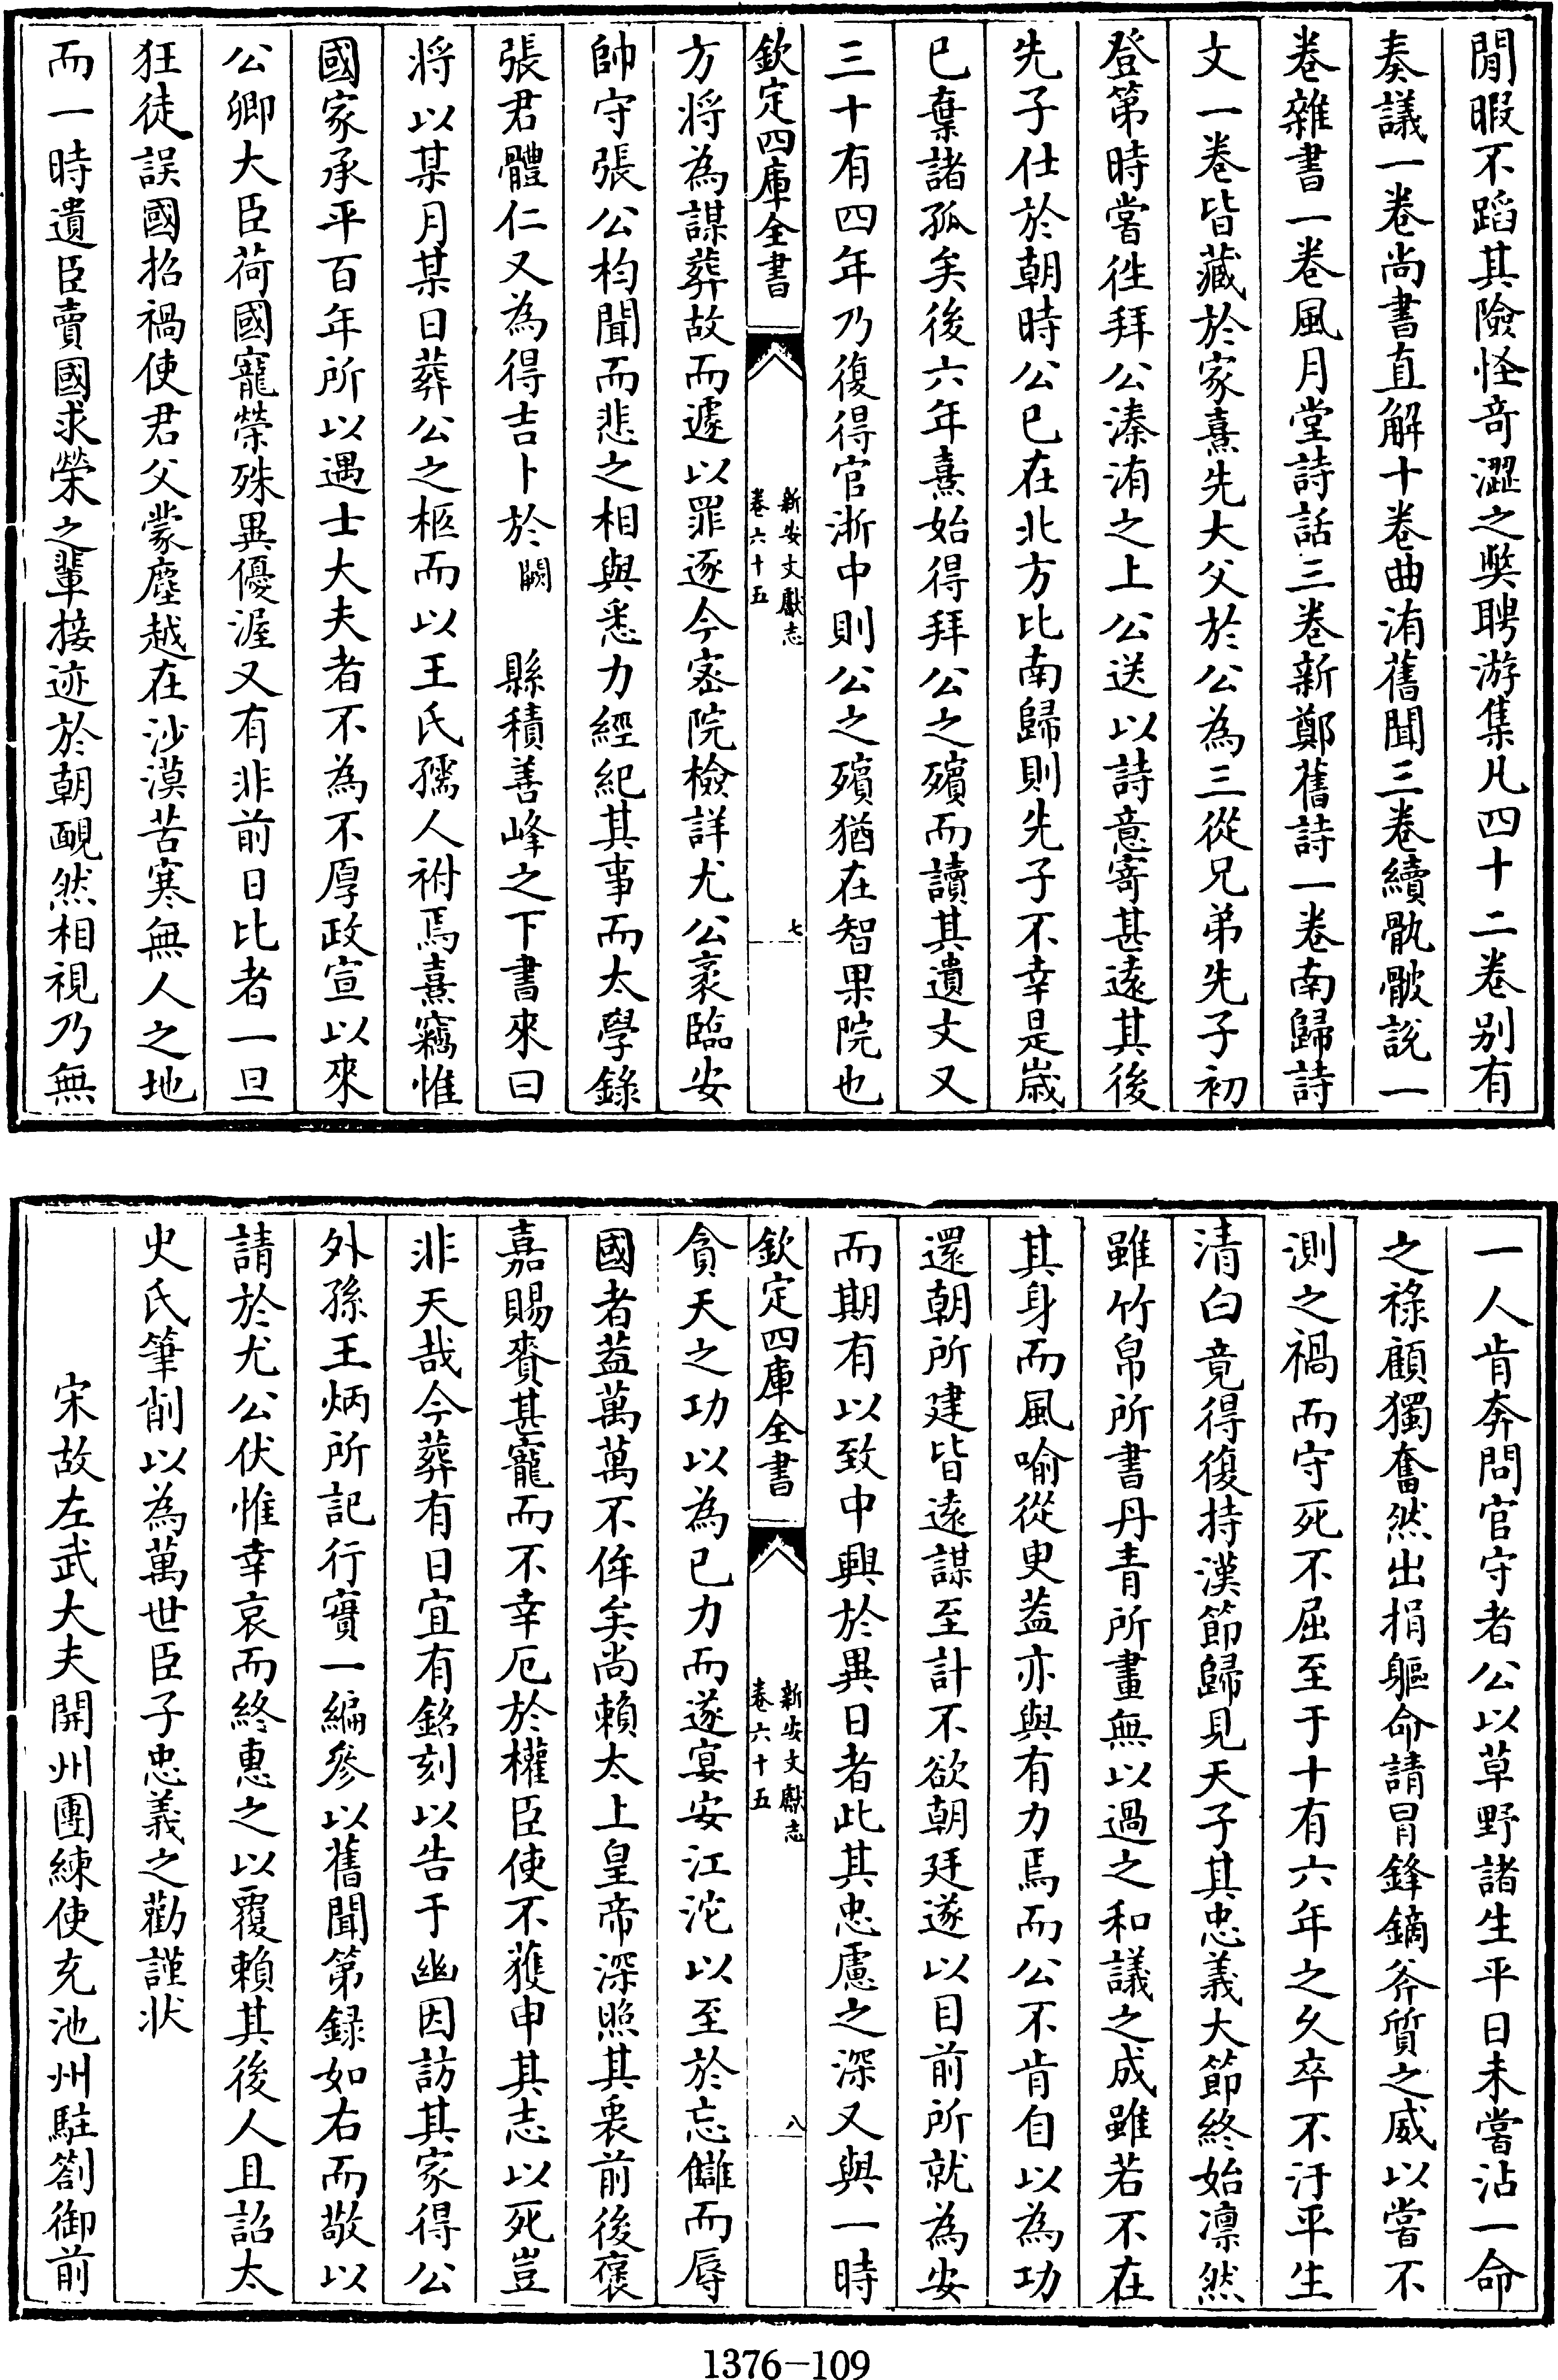 閒暇不蹈其險怪奇澀之獘聘游集凡四十二卷别有
奏議一卷尚書直解十卷曲洧舊聞三卷續骩骳說一
卷雜書一卷風月堂詩話三卷新鄭舊詩一卷南歸詩
文一卷皆藏於家熹先大父於公為三從兄弟先子初
登第時嘗徃拜公溱洧之上公送以詩意寄甚遠其後
先子仕於朝時公已在北方比南歸則先子不幸是歲
已棄諸孤矣後六年熹始得拜公之殯而讀其遺文又
三十有四年乃復得官浙中則公之殯猶在智果院也
欽定四庫全書
新安文獻志
卷六十五
七
方將為謀葬故而遽以罪逐今宻院檢詳尤公袤臨安
帥守張公杓聞而悲之相與悉力經紀其事而太學錄
張君體仁又為得吉卜於闕縣積善峰之下書來曰
將以某月某日葬公之柩而以王氏孺人祔焉熹竊惟
國家承平百年所以遇士大夫者不為不厚政宣以來
公卿大臣荷國寵榮殊異優渥又有非前日比者一旦
狂徒誤國招禍使君父蒙塵越在沙漠苦寒無人之地
而一時遺臣賣國求榮之輩接迹於朝靦然相視乃無
一人肯奔問官守者公以草野諸生平日未嘗沾一命
之祿顧獨奮然出捐軀命請冐鋒鏑斧質之威以嘗不
測之禍而守死不屈至于十有六年之久卒不汙平生
清白竟得復持漢節歸見天子其忠義大節終始凛然
雖竹帛所書丹青所畫無以過之和議之成雖若不在
其身而風喻從臾葢亦與有力焉而公不肯自以為功
還朝所建皆逺謀至計不欲朝廷遂以目前所就為安
而期有以致中興於異日者此其忠慮之深又與一時
欽定四庫全書
新安文獻志
卷六十五
八
貪天之功以為已力而遂宴安江沱以至於忘讎而辱
國者葢萬萬不侔矣尚賴太上皇帝深照其衷前後褒
嘉賜賚甚寵而不幸厄於權臣使不獲申其志以死豈
非天哉今葬有日宜有銘刻以告于幽因訪其家得公
外孫王炳所記行實一編參以舊聞第録如右而敬以
請於尤公伏惟幸哀而終惠之以覆賴其後人且詔太
史氏筆削以為萬世臣子忠義之勸謹状
宋故左武大夫開州團練使充池州駐劄御前
1376-109